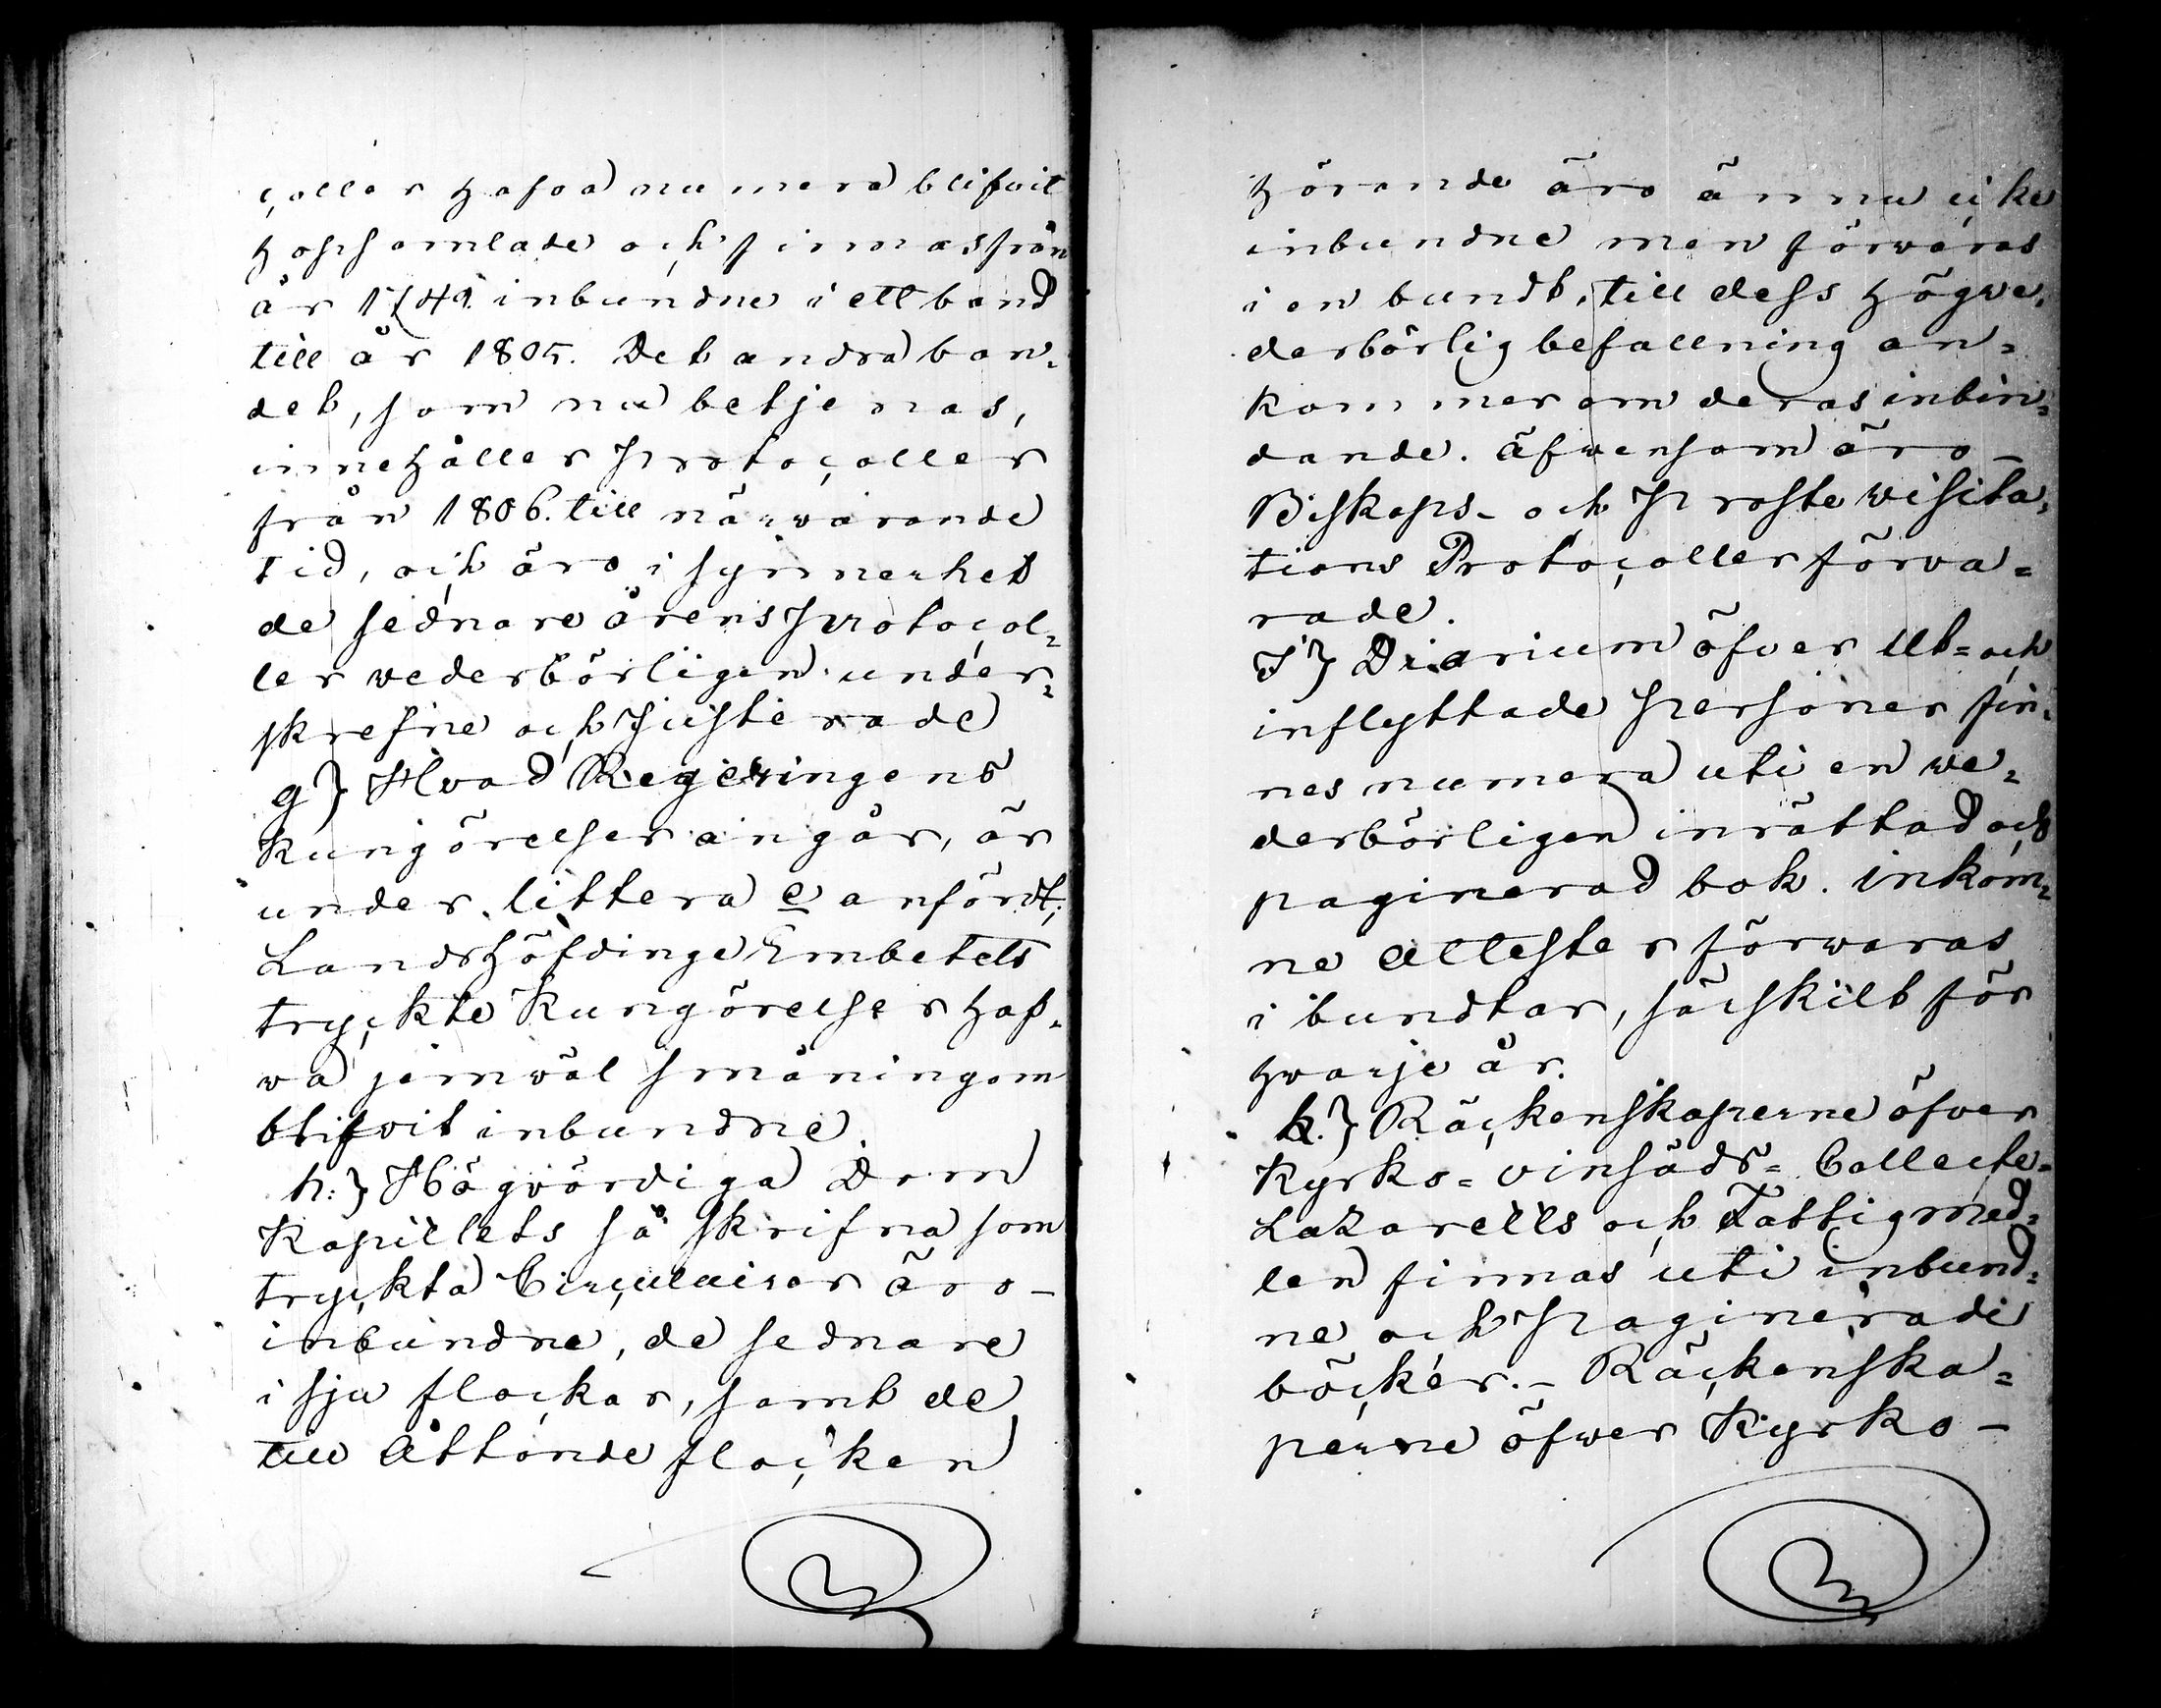 coller hafva numera blifvit
hopsamlade och finnas från
år 1749 inbundne i ett band
till år 1805. Det andra ban-
det, som nu betjenas,
innehåller Protocoller
från 1806. till närwarande
tid, och äro i synnerhet
de sednare årens Protocol-
ler wederbörligen under-
skrefne och Justerade
g} Hvad Regeringens
Kungörelser angår, är
under littera e anfördt;
Landshöfdinge Embetets
tryckte Kungörelser haf-
va jemwäl småningom
blifvit inbundne.
h:} Högvördiga Dom
Kapitlets så skrifna som
tryckta Circulairer äro -
inbundne, de sednare
i sju flockar, samt de
till Åttonde flocken
hörande äro ännu icke
inbundne men förwaras
i en bundt, till dess högwe-
derbörlig befallning an-
kommer om deras inbin-
dande. äfwensom äro
Biskops- och Proste visita-
tions Protocoller förva-
rade.
I} Diarium öfver Ut- och
inflyttade Personer fin-
nes numera uti en we-
derbörligen inrättad och
paginerad bok. inkom-
ne Attester förwaras
i bundtar, särskilt för
hwarje år.
k.} Räckenskaperne öfver
Kyrko- vinsäds- Collecte-
Lazaretts och Fattigmed-
len finnas uti inbund-
ne och Paginerade
böcker. - Räckenska-
perne öfwer Kyrko -